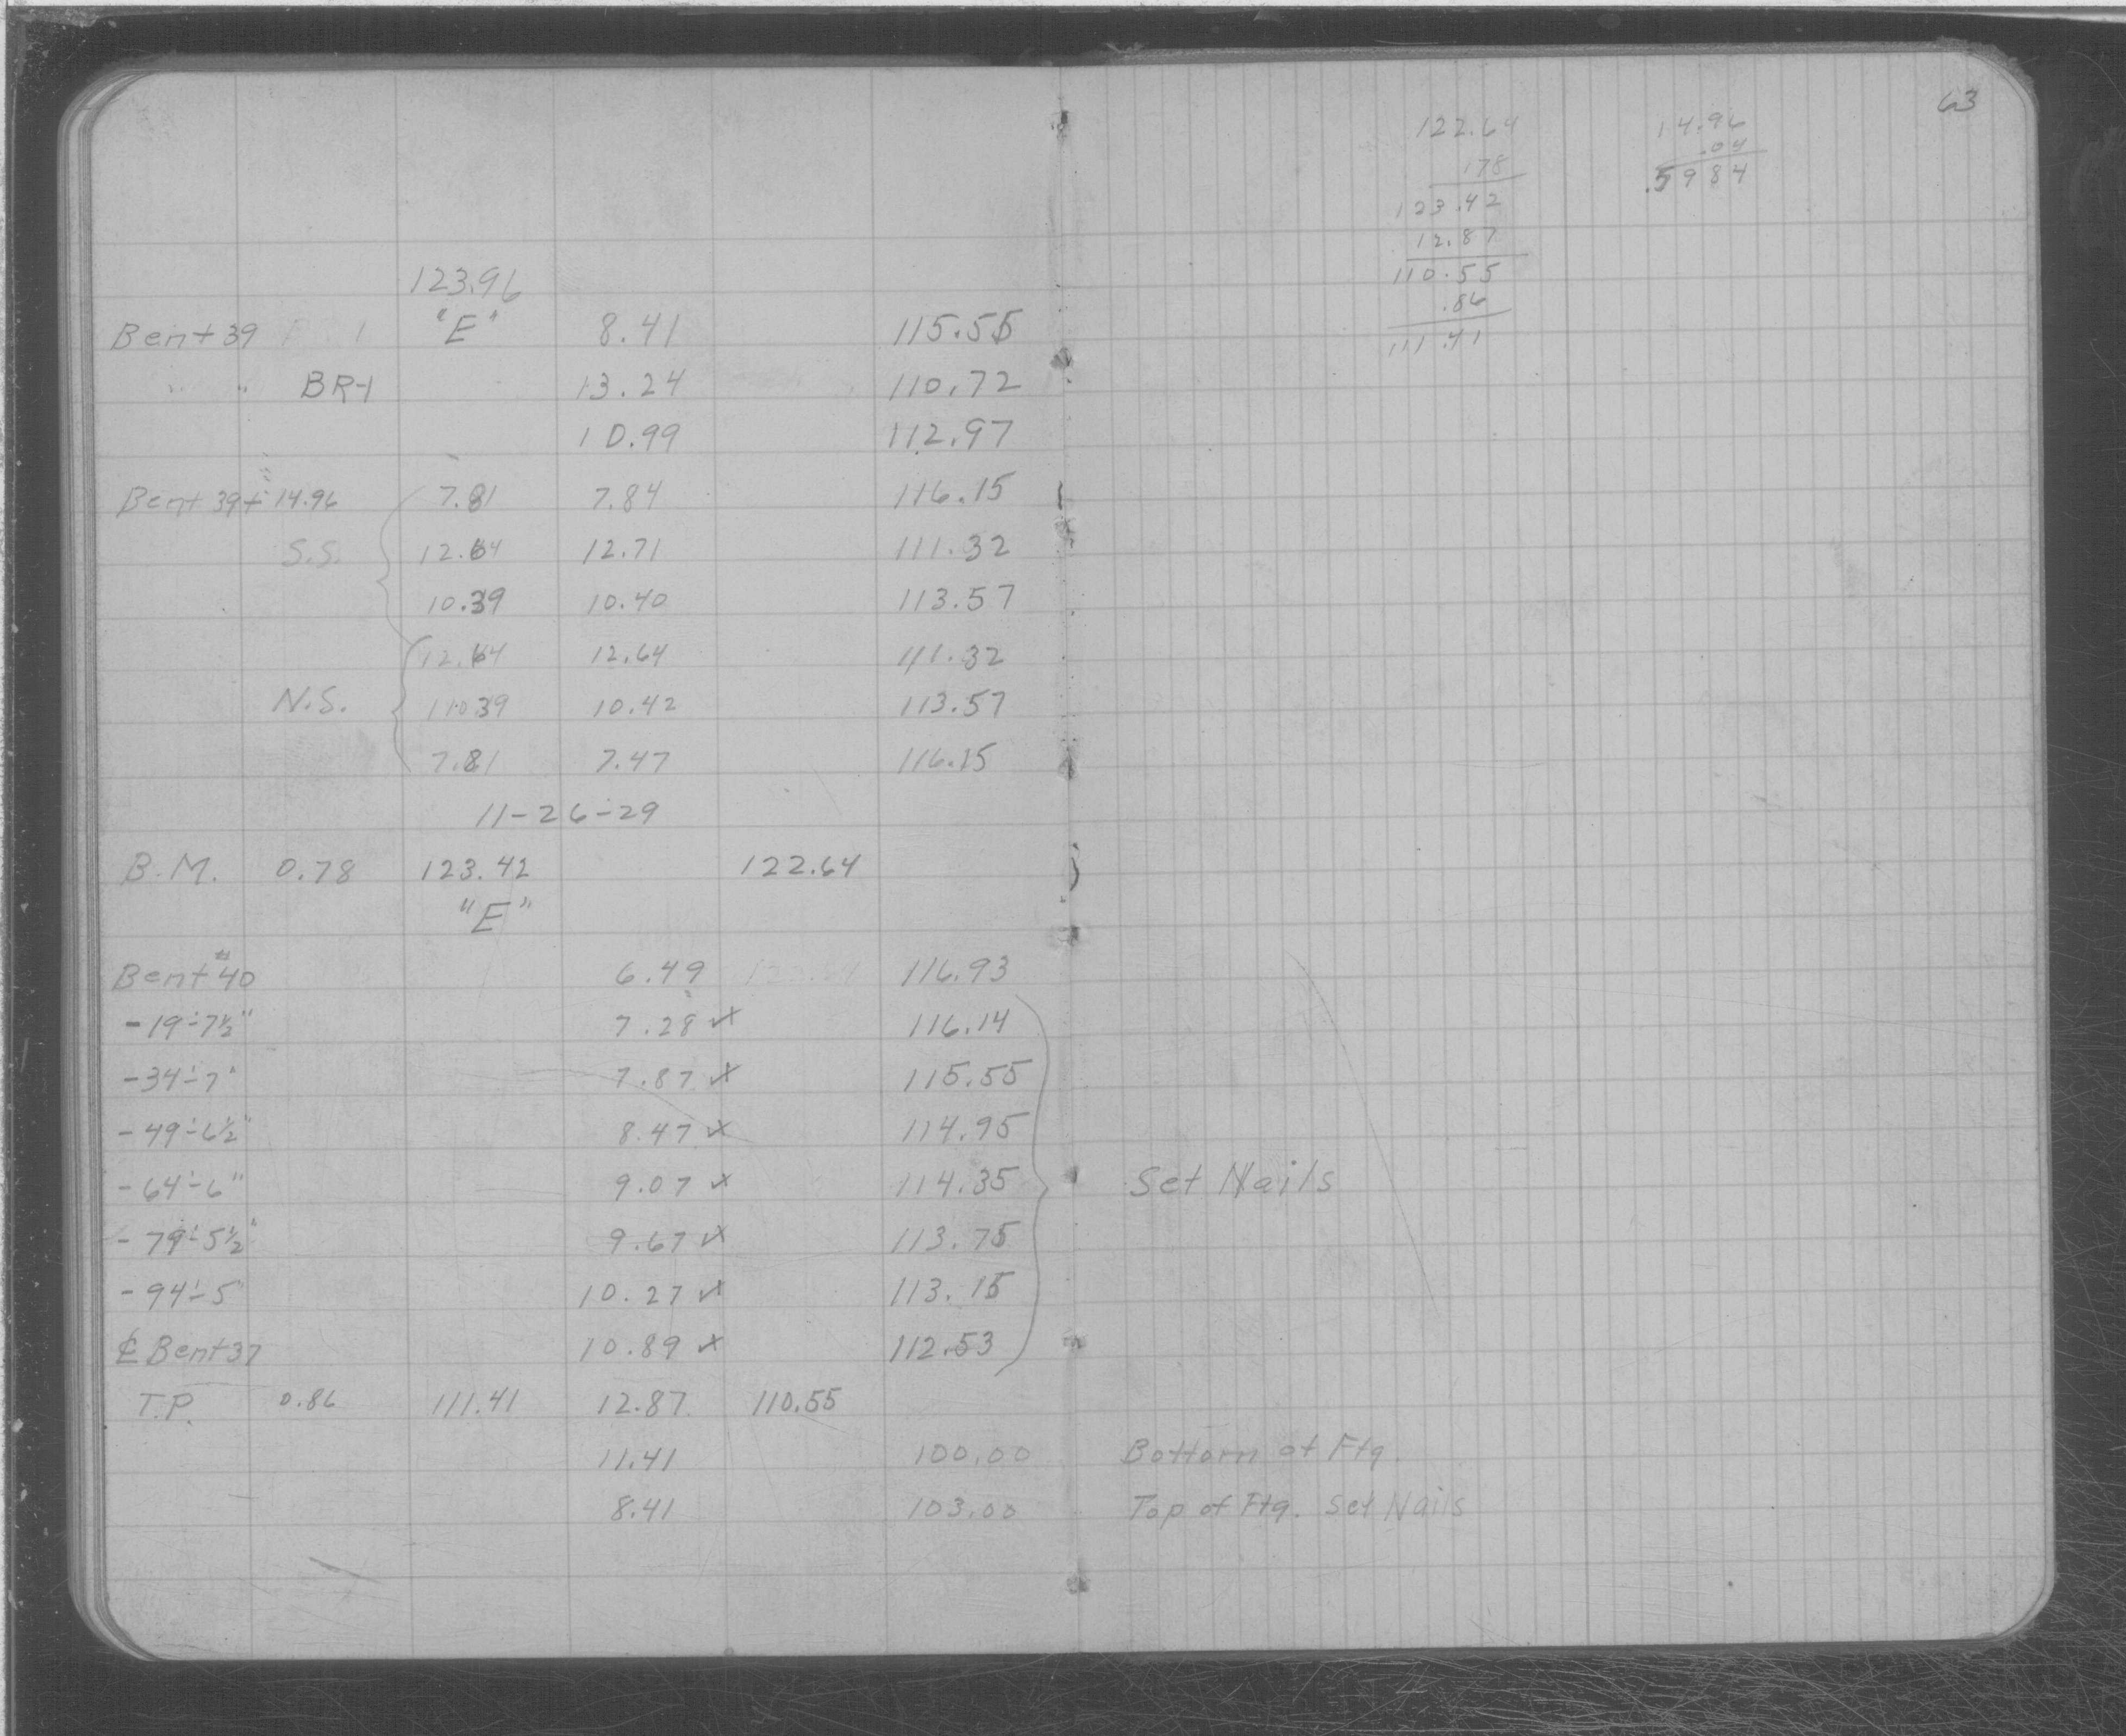 123.96
Bent 39 "E" 8.41 115.55
" " BR-1 13.24 110.72
10.99 112.97
Bent 39+14.96 7.81 7.84 116.15
S.S. 12.64 12.71 111.32
10.39 10.40 113.57
12.64 12.64 111.32
N.S. 10.39 10.42 113.57
7.81 7.47 116.15
11-26-29
B.M. 0.78 123.42 122.64
"E"
Bent #40 6.49 116.93
-19'-7½" 7.28 ✓ 116.14
-34'-7" 7.87 ✓ 115.55
-49'-6½" 8.47 ✓ 114.95
-64'-6" 9.07 ✓ 114.35
-79'-5½" 9.67 ✓ 113.75
-94'-5 10.27 ✓ 113.15
℄ Bent 37 10.89 ✓ 112.53
T.P. 0.86 111.41 12.87 110.55
11.41 100.00
8.41 103.00
63
122.64
178
123.42
12.87
110.55
.86
111.41
14.96
.04
.5984
Set Nails
Bottom of Ftg.
Top of Ftg. Set Nails